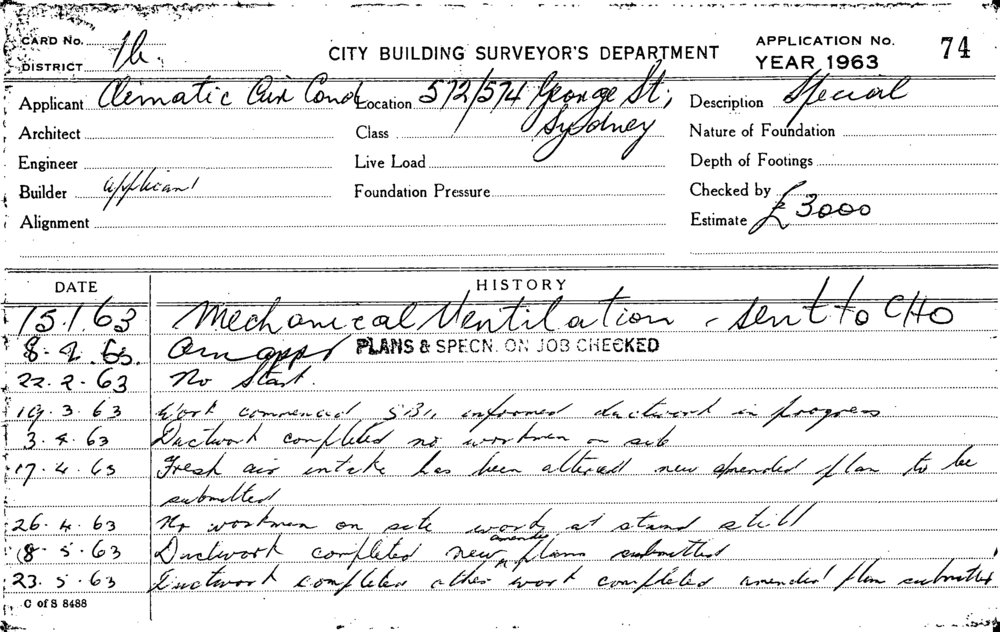 CARD No. 16 CITY BUILDING SURVEYOR'S DEPARTMENT APPLICATION No. 74
DISTRICT YEAR 1963
Applicant Climatic Air Cond Location 572/574 George St, Description Special
Sydney
Architect Class Nature of Foundation
Engineer Live Load Depth of Footings
Builder applicant Foundation Pressure Checked by
Alignment Estimate £3000
DATE HISTORY
15.1.63 Mechanical Ventilation - sent to CHO
8.2.63. On appr PLANS & SPECN. ON JOB CHECKED
22.2.63 No Start.
19.3.63 Work commenced informed ductwork in progress
3.4.63 Ductwork completed no workmen on site
17.4.63 Fresh air intake has been altered new amended plan to be
submitted
26.4.63 No workmen on site work at stand still
8.5.63 Ductwork completed new amended plans submitted
23.5.63 Ductwork completed other work completed amended plan submitted
C of S 8488